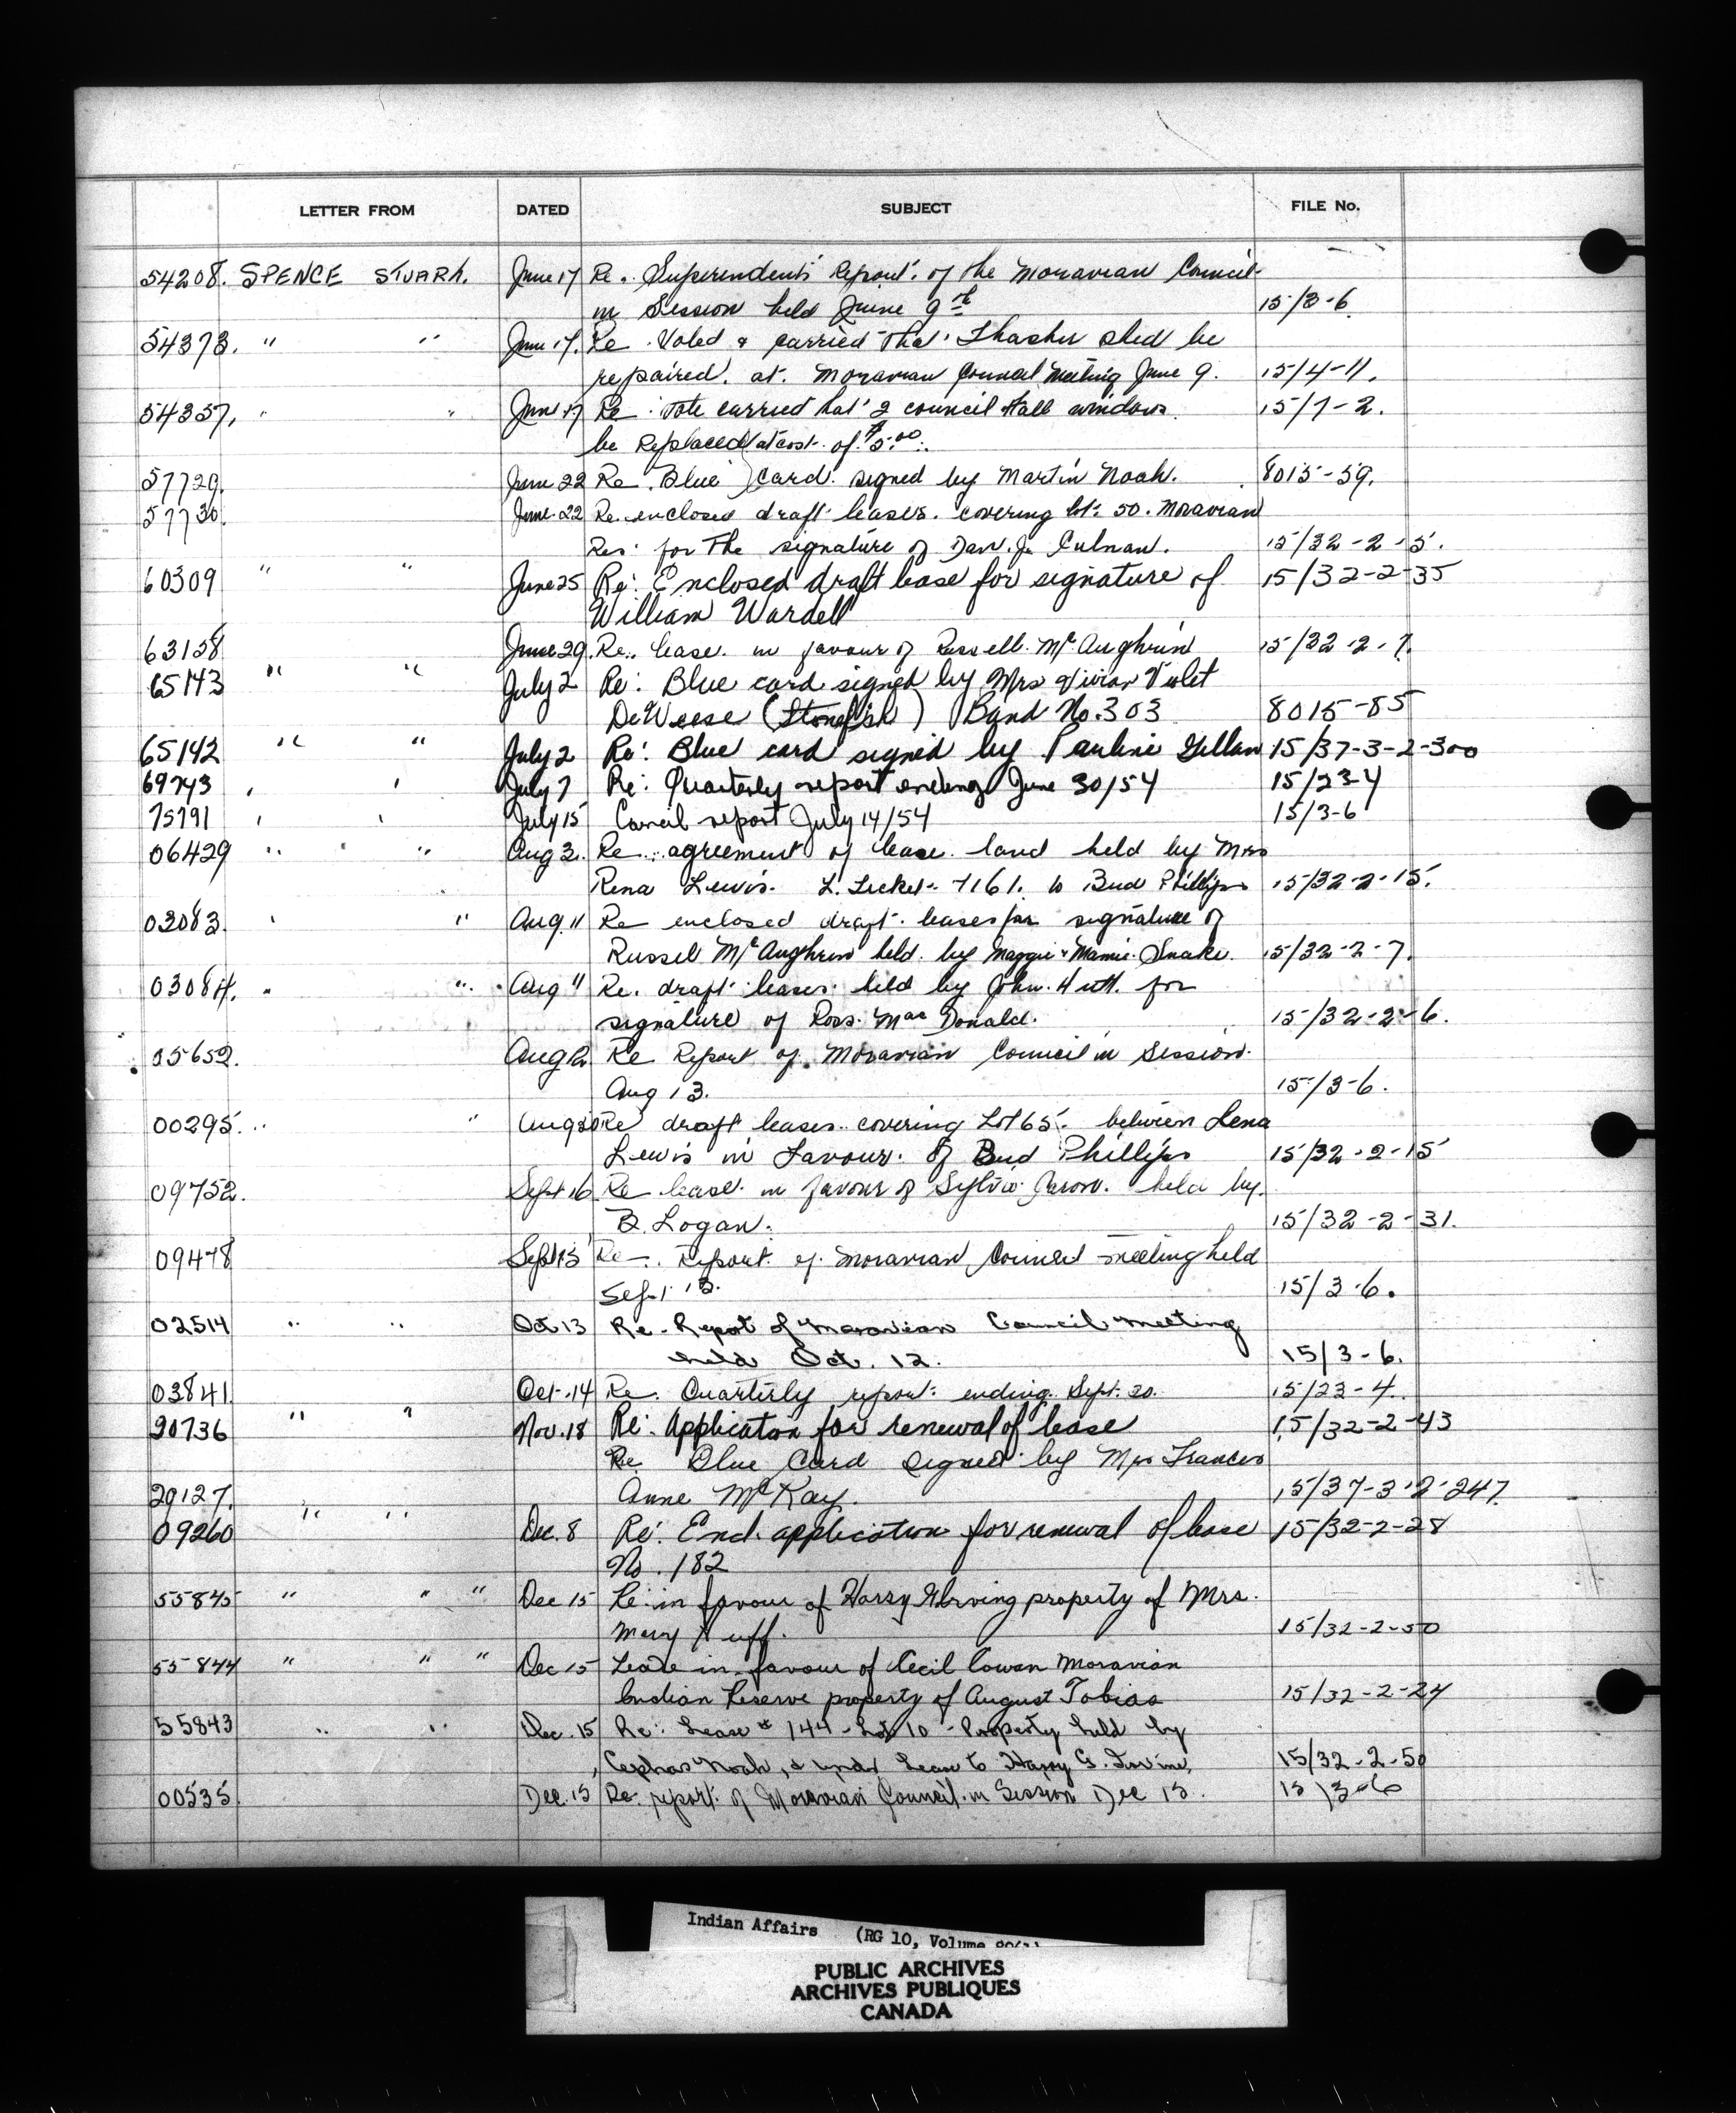 LETTER FROM DATED SUBJECT FILE No.
54208. SPENCE STUART. June 17 Re. Superendents' Report. of the Moravian Council
in Session held June 9th 15/3-6.
54373. " " June 17. Re Voted & carried that Thasher shed be
repaired. at. Moravian Council Meeting June 9. 15/4-11.
54357. " " June 17 Re vote carried that 2 council Hall windows 15/7-2.
be Replaced at cost. of $5.00.
57729. June 22 Re. Blue Card signed by Martin Noah. 8015-59.
57730. June 22 Re. enclosed draft leases. covering lot 50. Moravian
Res. for the signature of Culnan. 15/32-2-5.
60309 " " June 25 Re: Enclosed draft lease for signature of 15/32-2-35
William Wardell
63158 June 29. Re. lease in favour of Russell McAughrin 15/32-2-7.
65143 " " July 2 Re: Blue card signed by Mrs Vivian Violet
DeWeese (Stonefish) Band No. 303 8015-85
65142 " " July 2 Re: Blue card signed by Pauline Gillan 15/37-3-2-300
69743 " " July 7 Re: Quarterly report ending June 30/54 15/23-4
75791 " " July 15 Concil report July 14/54 15/3-6
06429 " " " Aug 3. Re. agreement of lease land held by Mrs
Rena Lewis. L. Ticket. 7161. to Bud Phillips 15/32-2-15.
03083. " " Aug. 11 Re enclosed draft leases for signature of
Russel McAughrin held by Maggie & Mamie Snake. 15/32-2-7.
03084. " " Aug 11 Re. draft leases held by John Huff. for
signature of Ross. MacDonald. 15/32-2-6.
05652. Aug Re Report of Moravian Council in Session.
Aug 13. 15/3-6.
00295. " " Aug 30 Re draft leases covering Lot 65. between Lena
Lewis in Favour. of Bud Phillips 15/32-2-15
09752. Sept 16 Re lease in favour of Sylvio held by
B. Logan. 15/32-2-31.
09478 Sept 13 Re. Report of Moravian Council meeting held
Sept 13. 15/3-6.
02514 " " Oct 13 Re. Report of Moravian Council Meeting
held Oct. 12. 15/3-6.
03841. Oct. 14 Re. Quarterly report ending Sept. 30. 15/23-4.
90736 " " Nov. 18 Re: Application for renewal of lease 15/32-2-43
Re Blue Card signed by Mrs Frances
29127. Anne McKay. 15/37-3-2-247
09260 " " Dec. 8 Re: Encl. application for renewal of lease 15/32-2-28
No. 182
55845 " " " Dec 15 Re: in favour of Harry G Irving property of Mrs.
Mary Huff. 15/32-2-50
55844 " " " Dec 15 Lease in favour of Cecil Cowan Moravian
Indian Reserve property of August Tobias 15/32-2-24
55843 " " Dec. 15 Re: Lease # 144 - Lot 10 - Property held by
Cephas Noah, & under Lease to Harry G. Irvine, 15/32-2-50
00535. Dec. 15 Re. report of Moravian Council in Session Dec 15. 15/3-6
Indian Affairs (RG 10, Volume
PUBLIC ARCHIVES
ARCHIVES PUBLIQUES
CANADA